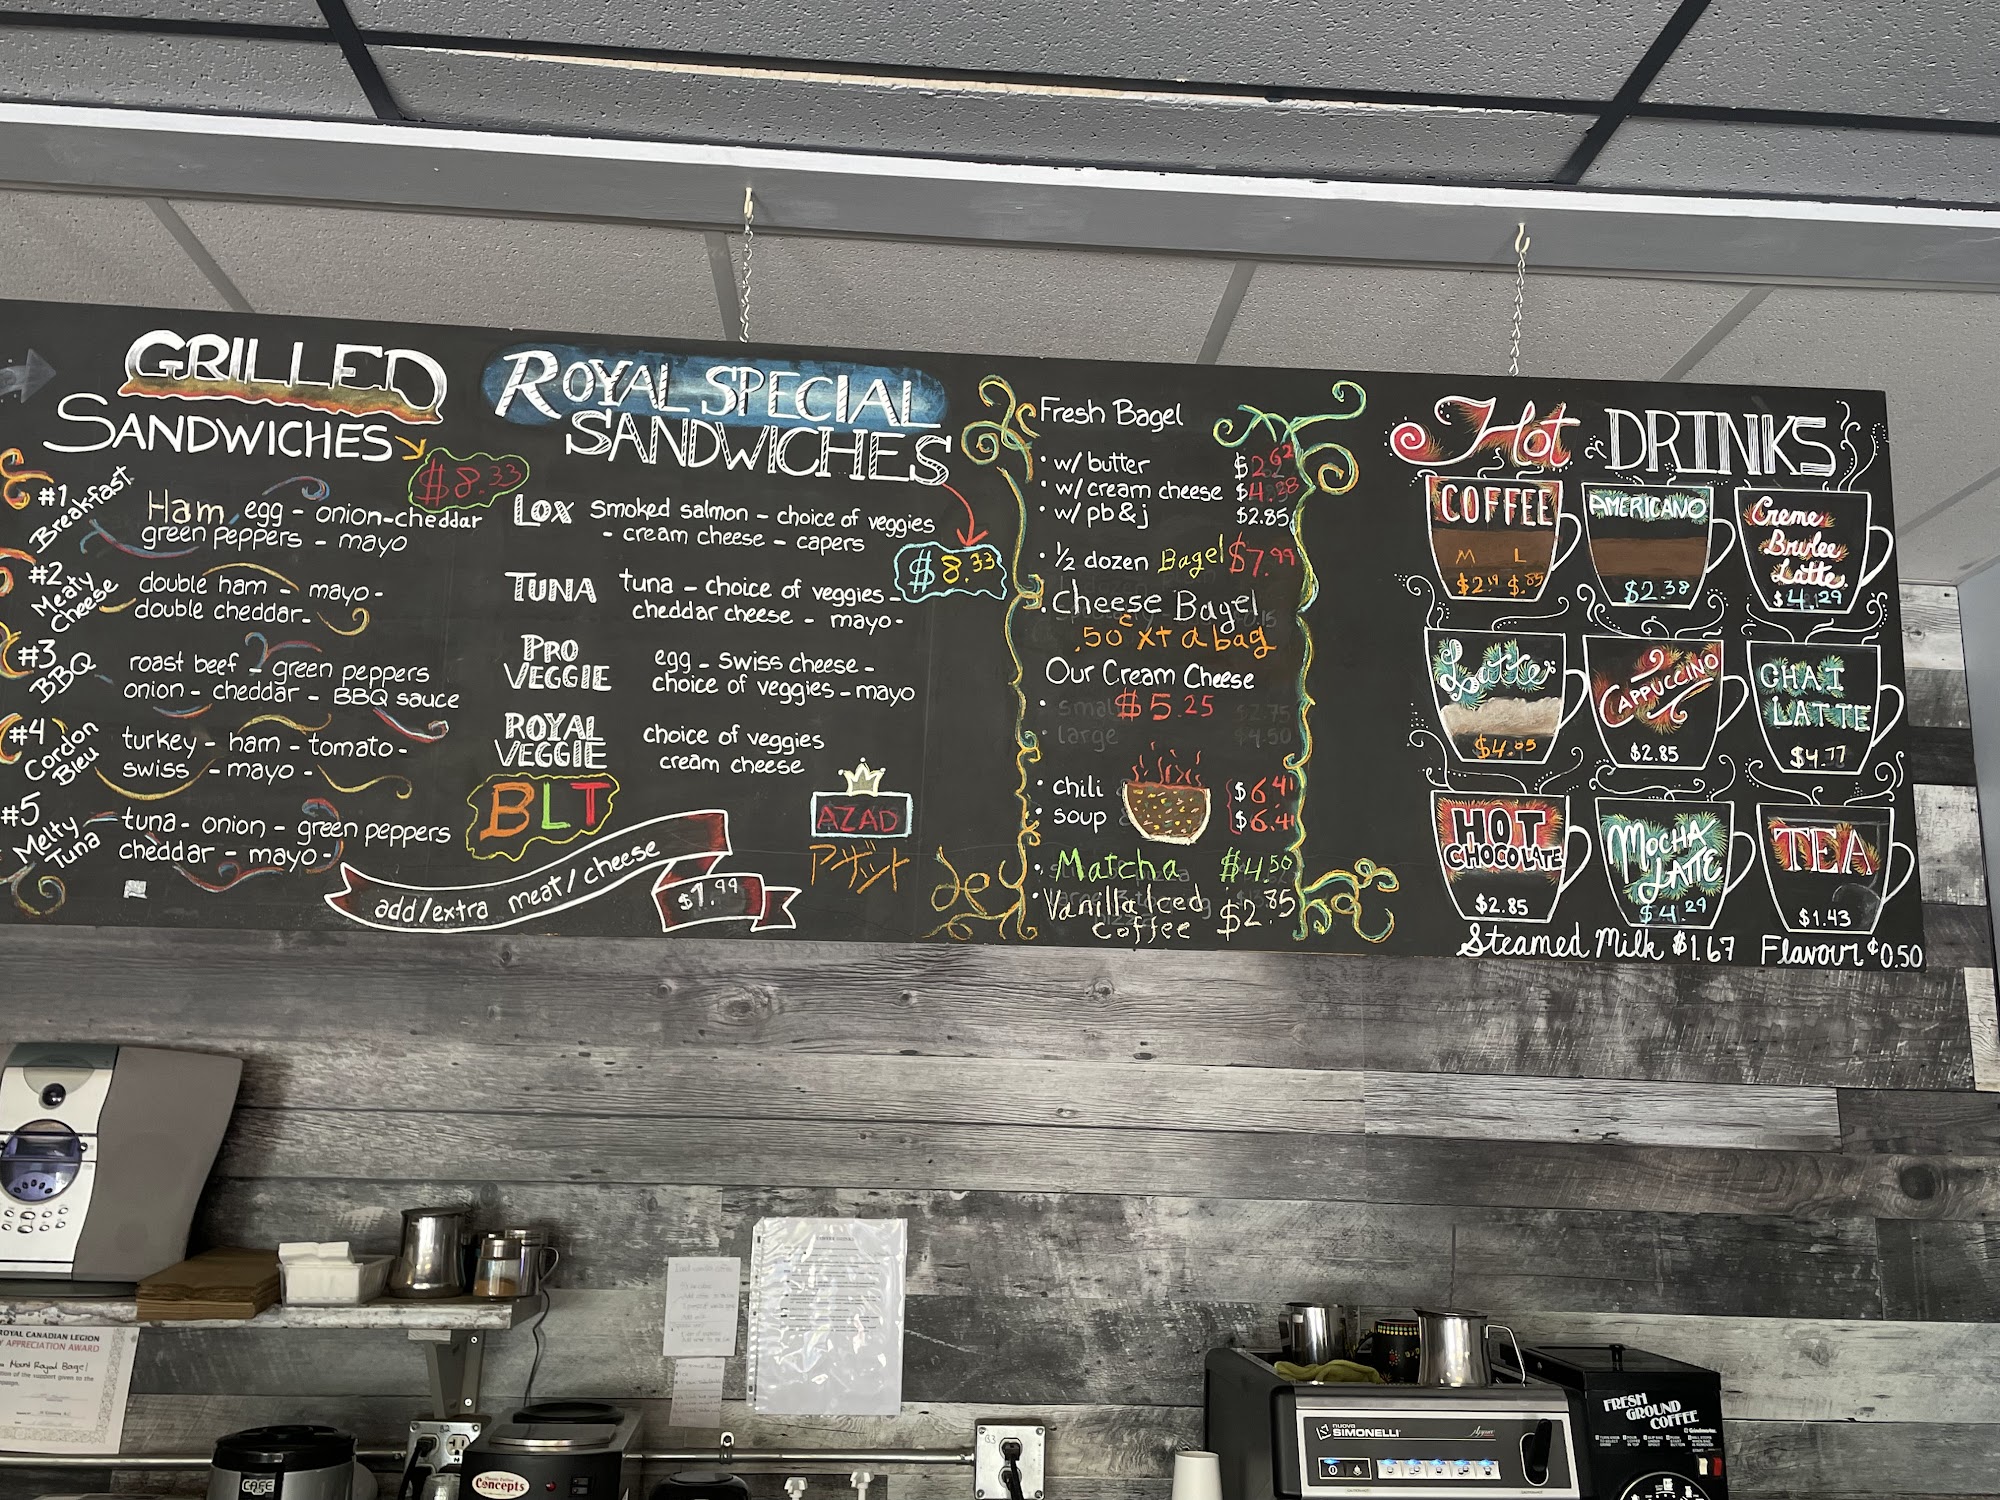 GRILLED
SANDWICHES
$8.33
#1
Breakfast
Ham egg - onion-cheddar
green peppers - mayo
#2
Meaty
Cheese
double ham - mayo -
double cheddar-
#3
BBQ
roast beef - green peppers
onion - cheddar - BBQ sauce
#4
Cordon
Bleu
turkey - ham - tomato -
swiss - mayo -
#5
Melty
Tuna
tuna - onion - green peppers
cheddar - mayo -
ROYAL SPECIAL
SANDWICHES
$8.33
LOX smoked salmon - choice of veggies
- cream cheese - capers
TUNA tuna - choice of veggies -
cheddar cheese - mayo-
PRO
VEGGIE
egg - swiss cheese -
choice of veggies - mayo
ROYAL
VEGGIE
choice of veggies
cream cheese
BLT
add/extra meat/cheese
$1.99
AZAD
アザット
Fresh Bagel
• w/ butter $2.62
• w/ cream cheese $4.28
• w/ pb & j $2.85
• ½ dozen Bagel $7.99
• Cheese Bagel
.50¢ xt a bag
Our Cream Cheese
$5.25
• small $2.75
• large $4.50
• chili $6.41
• soup $6.41
• Matcha $4.50
• Vanilla Iced $2.85
Coffee
Hot DRINKS
COFFEE
M L
$2.19
AMERICANO
$2.38
Creme
Brulee
Latte
$4.29
Latte
$4.05
CAPPUCCINO
$2.85
CHAI
LATTE
$4.77
HOT
CHOCOLATE
$2.85
MOCHA
LATTE
$4.29
TEA
$1.43
Steamed Milk $1.67 Flavour ¢0.50
ROYAL CANADIAN LEGION
APPRECIATION AWARD
Mount Royal Bagel
of the support given to the
CAFE
Concepts
nuova
SIMONELLI
Appia
FRESH
GROUND
COFFEE